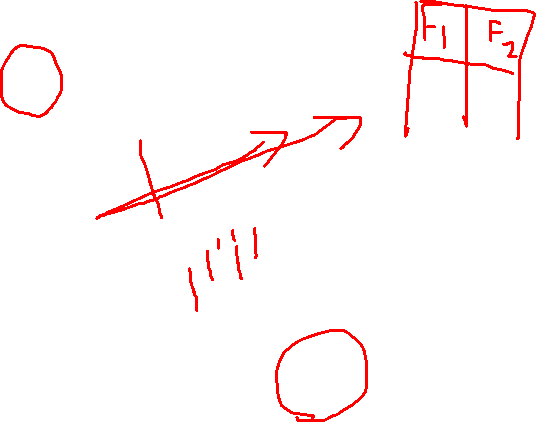 F1 F2